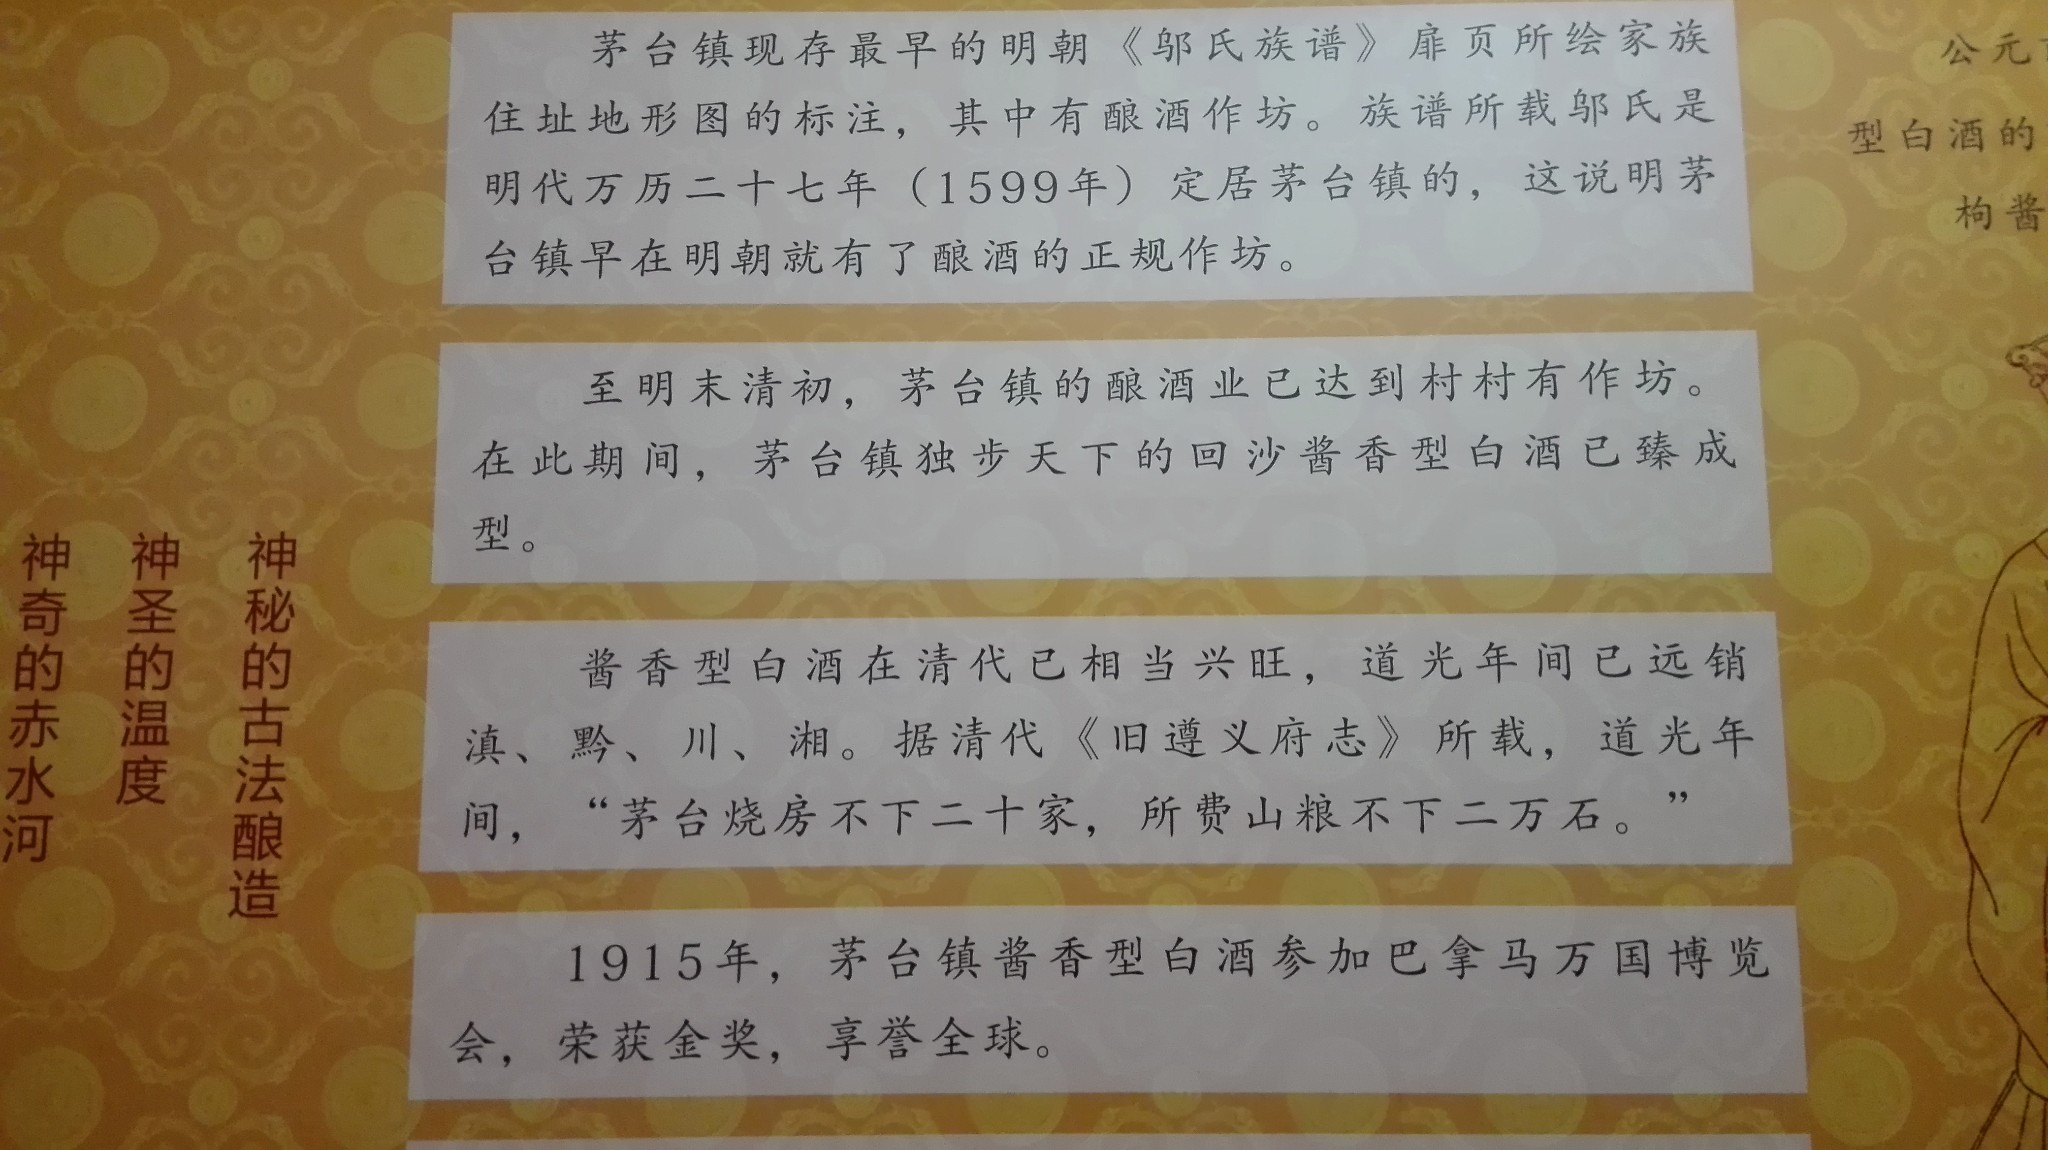 茅台镇现存最早的明朝《邬氏族谱》扉页所绘家族
住址地形图的标注，其中有酿酒作坊。族谱所载邬氏是
明代万历二十七年（1599年）定居茅台镇的，这说明茅
台镇早在明朝就有了酿酒的正规作坊。
至明末清初，茅台镇的酿酒业已达到村村有作坊。
在此期间，茅台镇独步天下的回沙酱香型白酒已臻成
型。
酱香型白酒在清代已相当兴旺，道光年间已远销
滇、黔、川、湘。据清代《旧遵义府志》所载，道光年
间，“茅台烧房不下二十家，所费山粮不下二万石。”
1915年，茅台镇酱香型白酒参加巴拿马万国博览
会，荣获金奖，享誉全球。
神秘的古法酿造
神圣的温度
神奇的赤水河
公元
型白酒的
枸酱